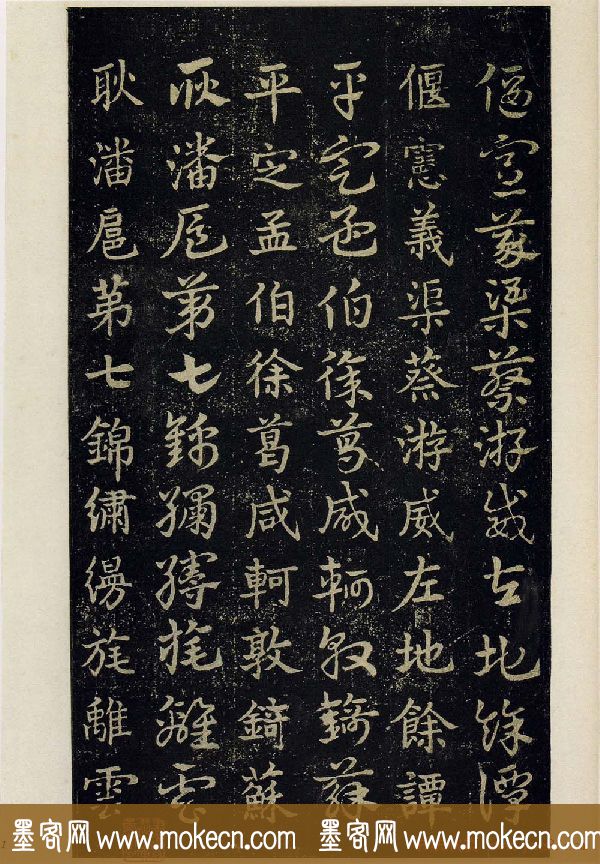 偃憲義渠蔡游威左地餘譚
偃憲義渠蔡游威左地餘譚
平定孟伯徐葛咸軻敦錡蘇
平定孟伯徐葛咸軻敦錡蘇
耿潘扈苐七錦繡縵旄離雲
耿潘扈苐七錦繡縵旄離雲
墨客网 www.mokecn.com 墨客网 www.mokecn.com